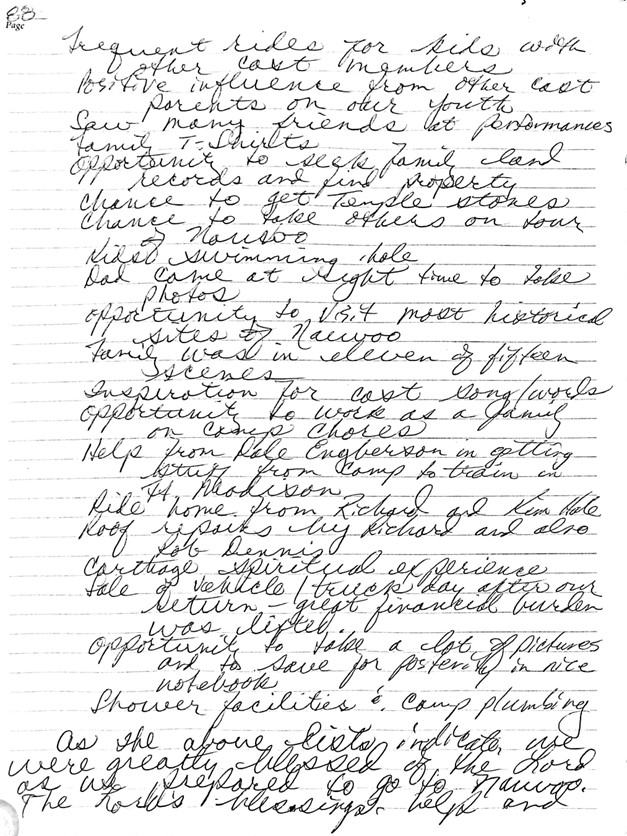 88
Page
Frequent rides for kids with
other cast members
Positive influence from other cast
parents on our youth
Saw many friends at performances
Family T-Shirts
Opportunity to seek family land
records and find property
Chance to get Temple stones
Chance to take others on tour
of Nauvoo
Kids swimming hole
Dad came at right time to take
photos
Opportunity to visit most historical
sites of Nauvoo
Family was in eleven of fifteen
scenes
Inspiration for cast song/words
Opportunity to work as a family
on camp chores
Help from Dale Engberson in getting
stuff from camp to train in
Ft Madison
Ride home from Richard and Kim Hale
Roof repairs by Richard and also
Rob Dennis
Carthage spiritual experience
Sale of vehicle/truck day after our
return - great financial burden
was lifted.
Opportunity to take a lot of pictures
and to save for posterity in nice
notebook
Shower facilities & camp plumbing
As the above lists indicate, we
were greatly blessed of the Lord
as we prepared to go to Nauvoo.
The Lord's blessings, help and